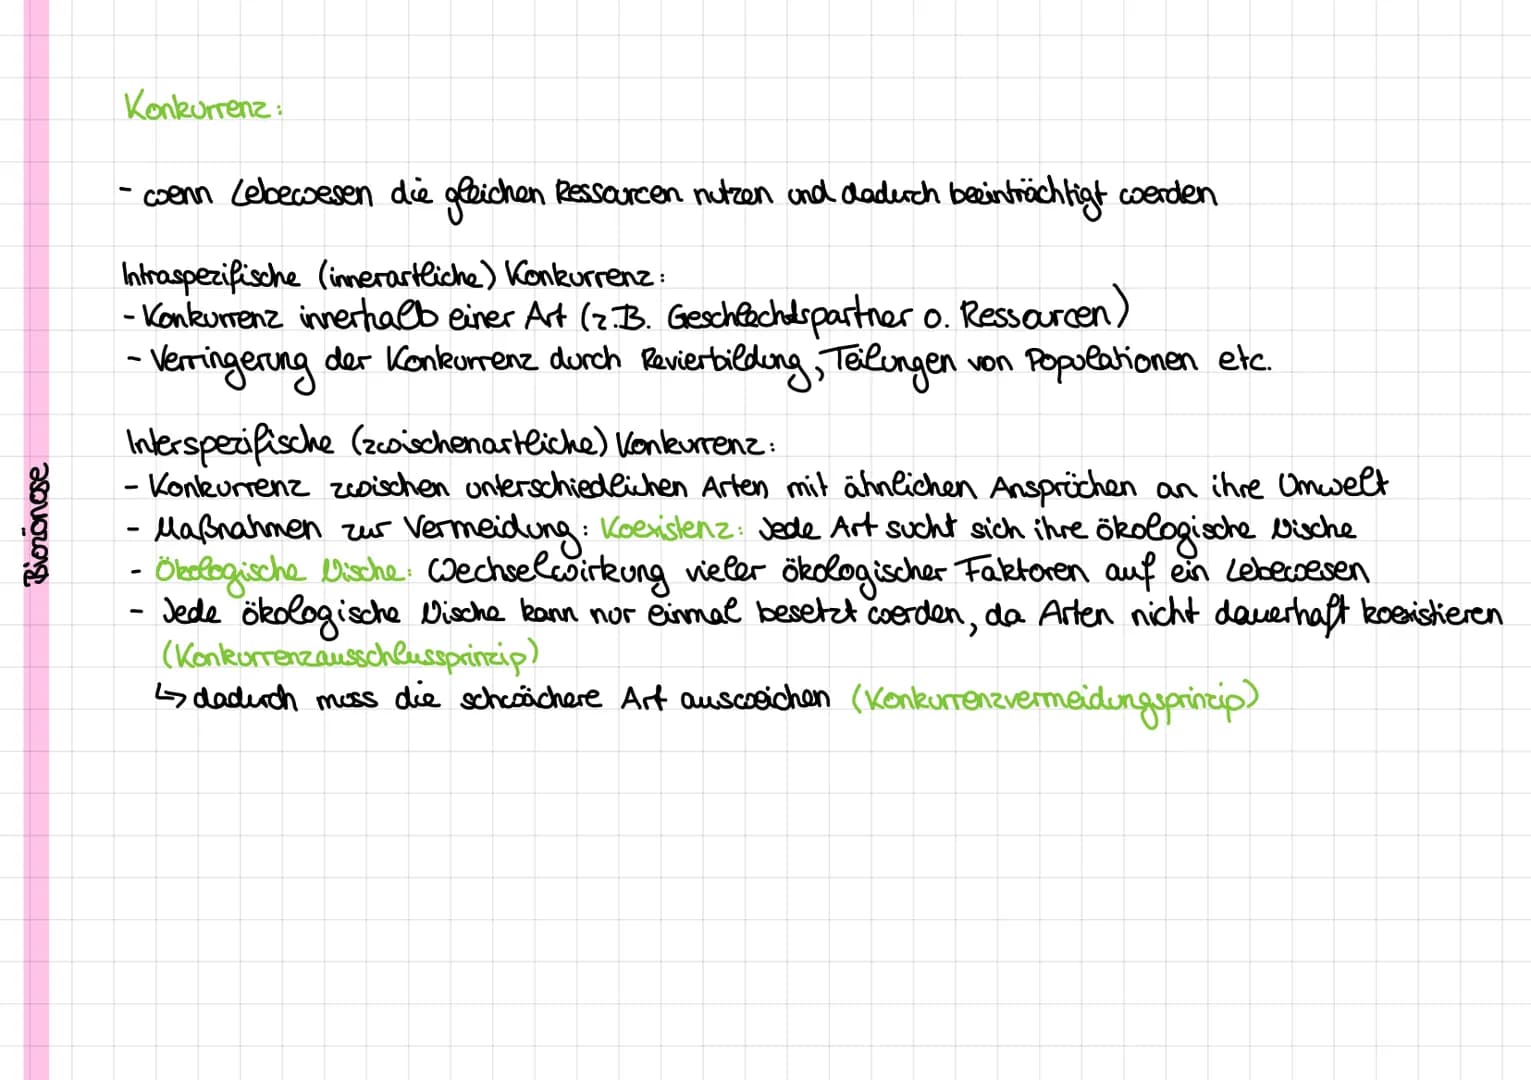 Konkurrenz:
- wenn Lebewesen die gleichen Ressourcen nutzen und dadurch beeinträchtigt werden
Intraspezifische (innerartliche) Konkurrenz:
- Konkurrenz innerhalb einer Art (z.B. Geschlechtspartner o. Ressourcen)
- Verringerung der Konkurrenz durch Revierbildung, Teilungen von Populationen etc.
Interspezifische (zwischenartliche) Konkurrenz:
- Konkurrenz zwischen unterschiedlichen Arten mit ähnlichen Ansprüchen an ihre Umwelt
- Maßnahmen zur Vermeidung: Koexistenz: Jede Art sucht sich ihre ökologische Nische
- Ökologische Nische: Wechselwirkung vieler ökologischer Faktoren auf ein Lebewesen
- Jede ökologische Nische kann nur einmal besetzt werden, da Arten nicht dauerhaft koexistieren
(Konkurrenzausschlussprinzip)
↳ dadurch muss die schwächere Art ausweichen (Konkurrenzvermeidungsprinzip)